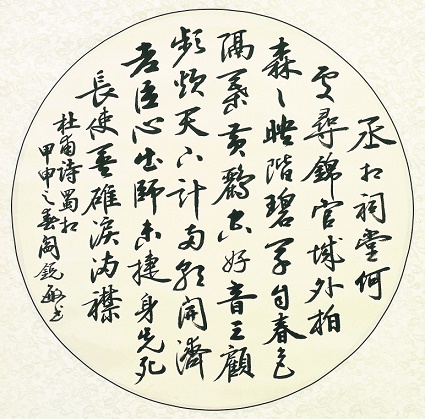 丞相祠堂何
處尋錦官城外柏
森〻映階碧草自春色
隔葉黄鸝空好音三顧
頻煩天下計兩朝開濟
老臣心出師未捷身先死
長使英雄淚滿襟
杜甫詩蜀相
甲申之春閻銳敏书